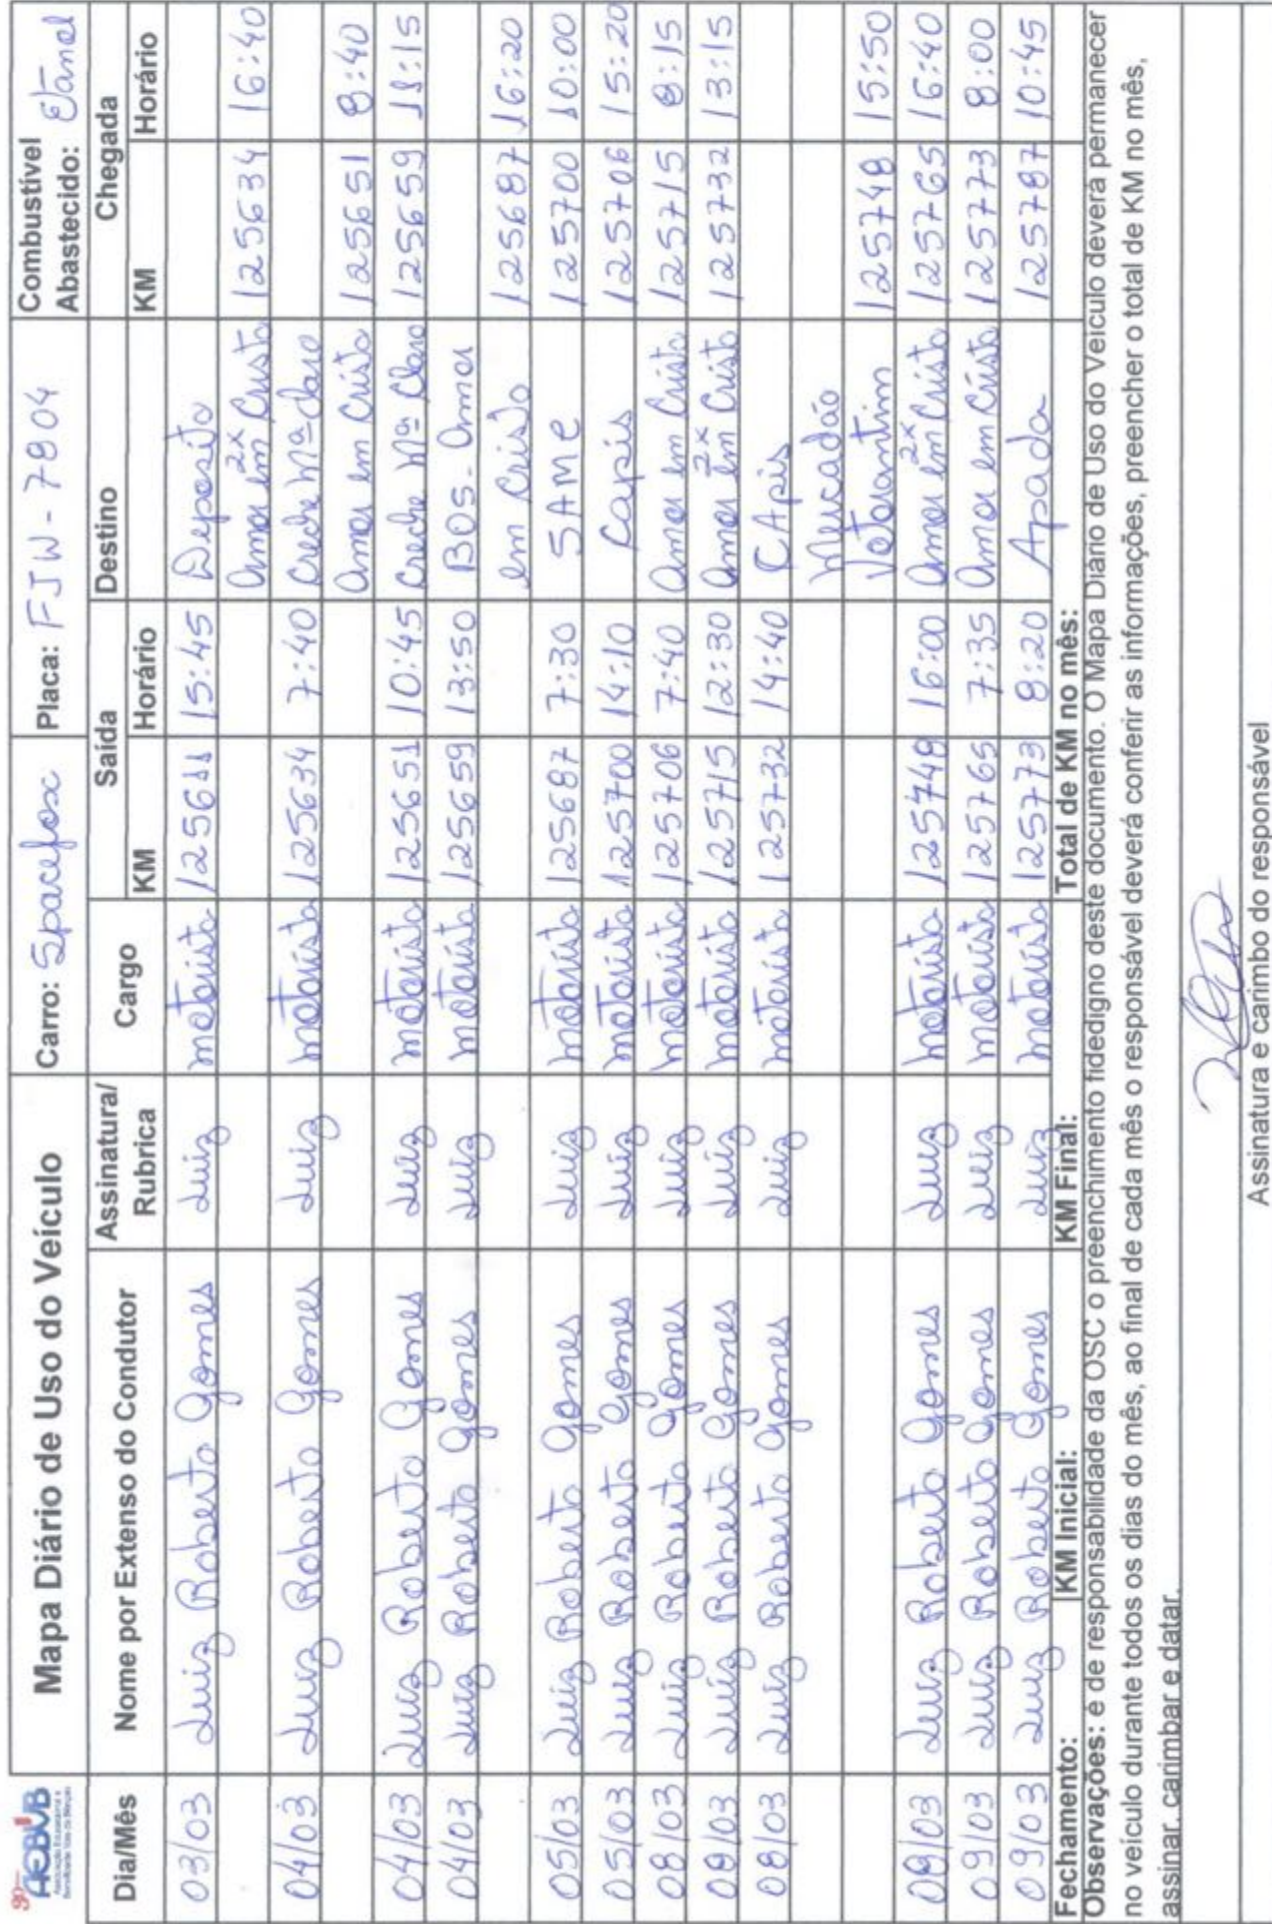 AEBVB
Associação Educacional e
Beneficente Vale da Bênção
Mapa Diário de Uso do Veículo Carro: Spacefox Placa: FJW-7804 Combustível Abastecido: Etanol
Dia/Mês Nome por Extenso do Condutor Assinatura/ Rubrica Cargo Saída Destino Chegada
KM Horário KM Horário
03/03 Luiz Roberto Gomes Luiz motorista 125611 15:45 Deposito
Amor em 2x Cristo 125634 16:40
04/03 Luiz Roberto Gomes Luiz motorista 125634 7:40 Creche Mª Claro
Amor em Cristo 125651 8:40
04/03 Luiz Roberto Gomes Luiz motorista 125651 10:45 Creche Mª Claro 125659 11:15
04/03 Luiz Roberto Gomes Luiz motorista 125659 13:50 BOS - Amor
em Cristo 125687 16:20
05/03 Luiz Roberto Gomes Luiz motorista 125687 7:30 SAME 125700 10:00
05/03 Luiz Roberto Gomes Luiz motorista 125700 14:10 Capis 125706 15:20
08/03 Luiz Roberto Gomes Luiz motorista 125706 7:40 Amor em Cristo 125715 8:15
08/03 Luiz Roberto Gomes Luiz motorista 125715 12:30 Amor em 2x Cristo 125732 13:15
08/03 Luiz Roberto Gomes Luiz motorista 125732 14:40 CApis
Mercadão
Votorantim 125748 15:50
08/03 Luiz Roberto Gomes Luiz motorista 125748 16:00 Amor em 2x Cristo 125765 16:40
09/03 Luiz Roberto Gomes Luiz motorista 125765 7:35 Amor em Cristo 125773 8:00
09/03 Luiz Roberto Gomes Luiz motorista 125773 8:20 Apada 125787 10:45
Fechamento: KM Inicial: KM Final: Total de KM no mês:
Observações: é de responsabilidade da OSC o preenchimento fidedigno deste documento. O Mapa Diário de Uso do Veículo deverá permanecer
no veículo durante todos os dias do mês, ao final de cada mês o responsável deverá conferir as informações, preencher o total de KM no mês,
assinar, carimbar e datar.
Assinatura e carimbo do responsável